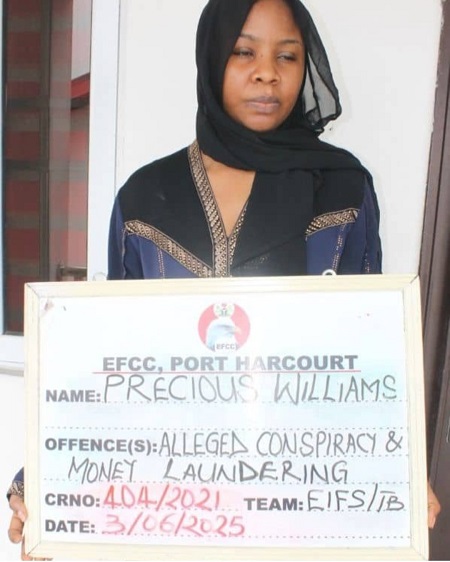 EFCC
EFCC, PORT HARCOURT
NAME: PRECIOUS WILLIAMS
OFFENCE(S): ALLEGED CONSPIRACY &
MONEY LAUNDERING
CRNO: 404/2021 TEAM: EIFS/IB
DATE: 3/06/2025